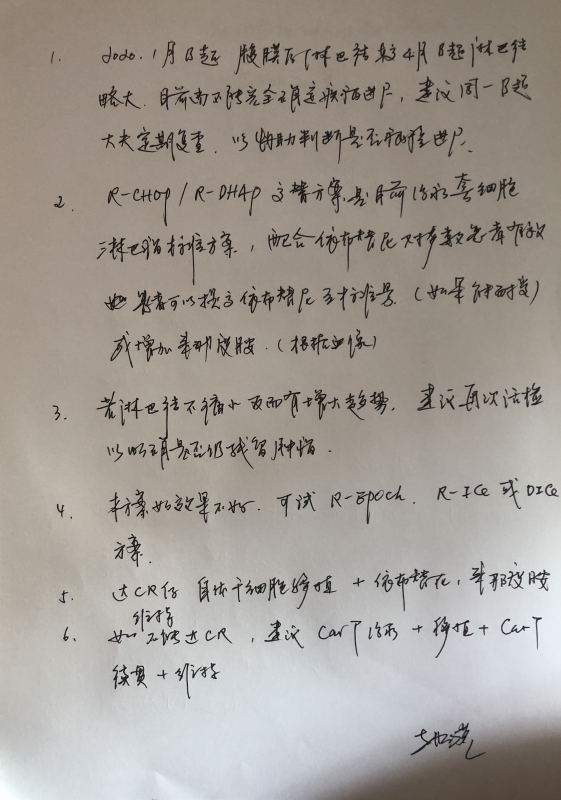 1. 2020.1月B超 腹膜后淋巴结较4月B超淋巴结
略大.目前尚不能完全确定疾病进展,建议同一B超
大夫定期复查.以帮助判断是否病程进展.
2. R-CHOP/R-DHAP交替方案是目前治疗套细胞
淋巴瘤标准方案,配合依布替尼对多数患者有效
患者可以提高依布替尼至标准量.(如果能耐受)
或增加来那度胺.(根据血像)
3. 若淋巴结不缩小反而有增大趋势.建议再次活检
以明确是否仍残留肿瘤.
4. 本方案如效果不好.可试R-EPOCH.R-ICE或DICE
方案.
5. 达CR后 自体干细胞移植+依布替尼,来那度胺
维持
6. 如不能达CR,建议CarT治疗+移植+CarT
续贯+维持